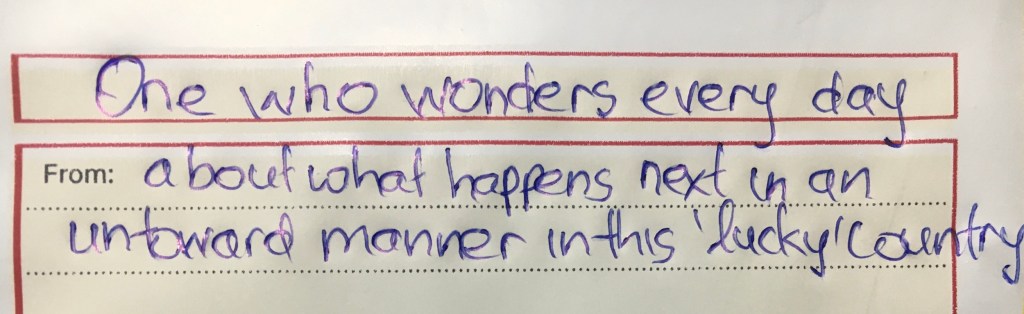 One who wonders every day
From: about what happens next in an
untoward manner in this 'lucky' country